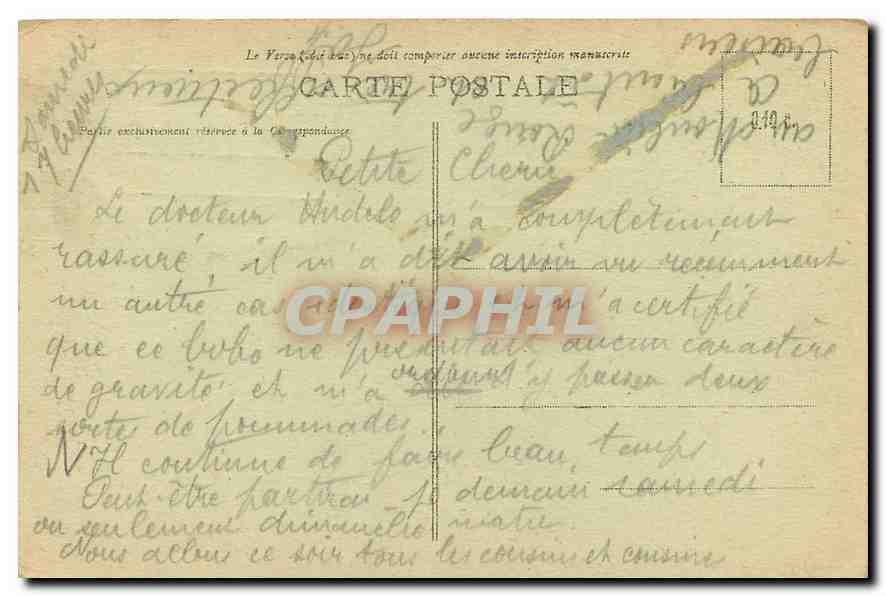 Le Verso (côté vue) ne doit comporter aucune inscription manuscrite
CARTE POSTALE
Partie exclusivement réservée à la Correspondance
0.10 c.
Petite Chérie
Le docteur Hudelo m'a complètement
rassuré, il m'a dit avoir vu récemment
un autre cas m'a certifié
que ce bobo ne présentait aucun caractère
de gravité et m'a ordonné d'y passer deux
sortes de pommades.
Il continue de faire beau temps
Peut-être partirai-je demain samedi
ou seulement dimanche matin.
Nous allons ce soir tous les cousins et cousines
au Moulin Rouge
CPAPHIL